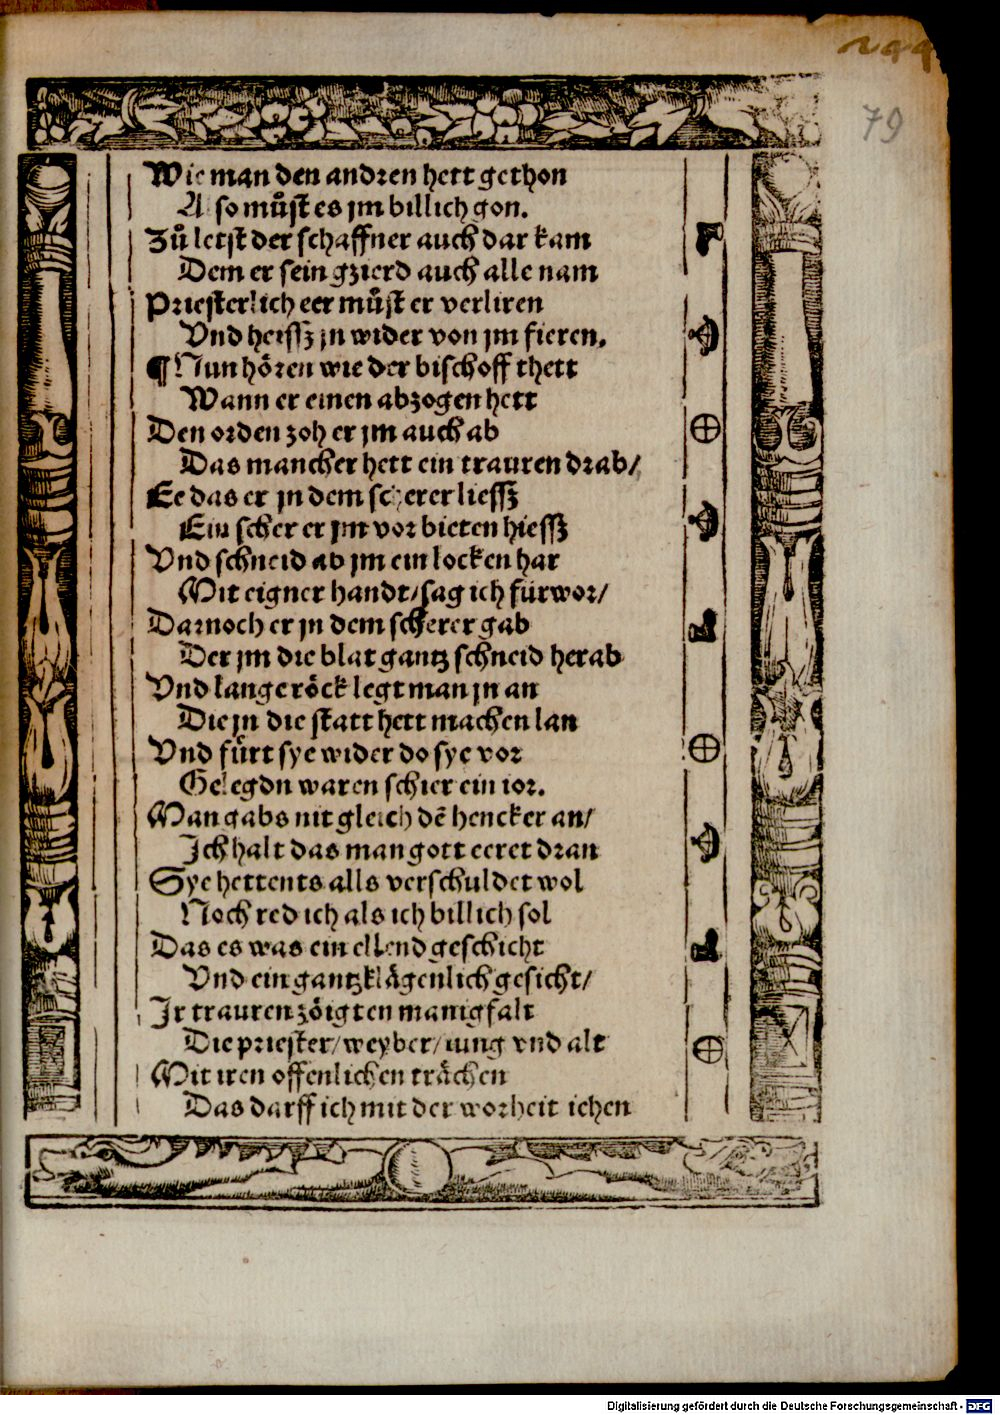 79
Wie man den andren hett gethon
Also muͦst es jm billich gon.
Zuͦ letst der schaffner auch dar kam
Dem er sein gzierd auch alle nam
Priesterlich eer muͦst er verliren
Vnd heissz jn wider von jm fieren.
¶ Nun hoͤren wie der bischoff thett
Wann er einen abzogen hett
Den orden zoh er jm auch ab
Das mancher hett ein trauren drab/
Ee das er jn dem scherer liessz
Ein scher er jm vor bieten hiessz
Vnd schneid ab jm ein locken har
Mit eigner handt/sag ich fürwor/
Darnoch er jn dem scherer gab
Der jm die blat gantz schneid herab
Vnd lange roͤck legt man jn an
Die jn die statt hett machen lan
Vnd fuͤrt sye wider do sye vor
Gelegdn waren schier ein ior.
Man gabs nit gleich dē hencker an/
Ich halt das man gott eeret dran
Sye hettents alls verschuldet wol
Noch red ich als ich billich sol
Das es was ein ellend geschicht
Vnd ein gantz klaͤgenlich gesicht/
Ir trauren zoͤigten manigfalt
Die priester/weyber/iung vnd alt
Mit iren offenlichen traͤchen
Das darff ich mit der worheit iehen
Digitalisierung gefördert durch die Deutsche Forschungsgemeinschaft - DFG